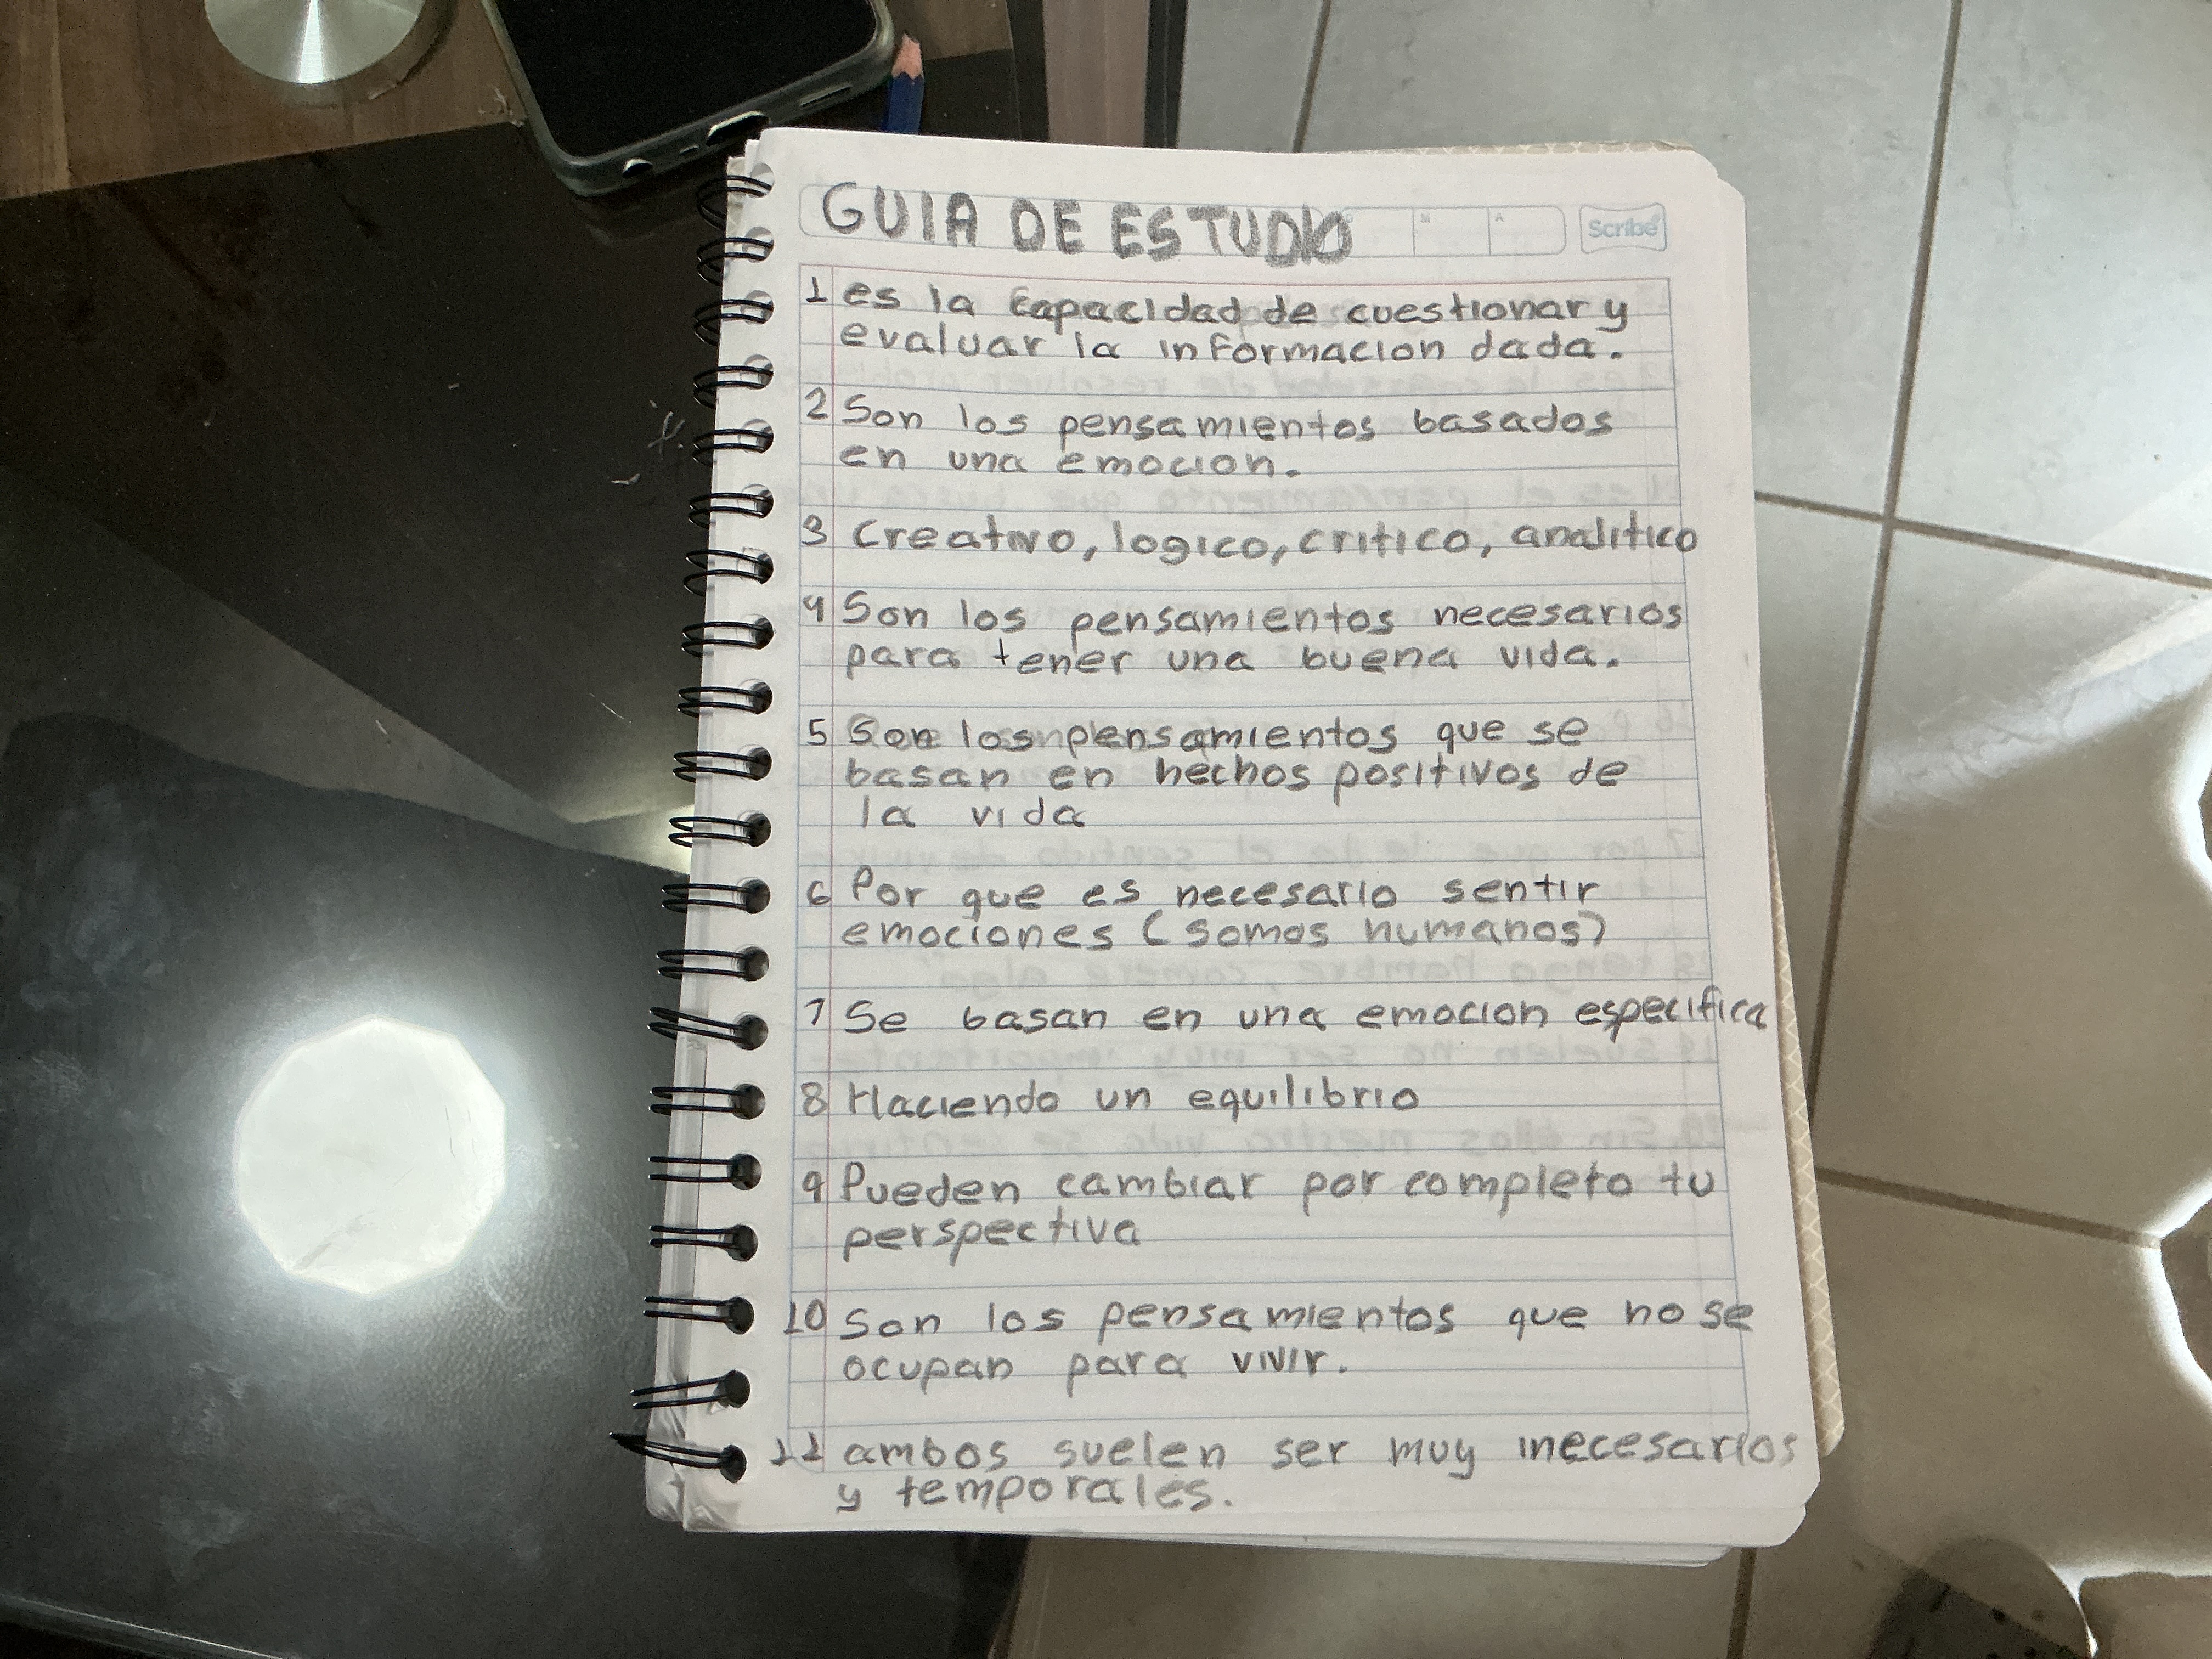 GUIA DE ESTUDIO
M A
Scribe
1 es la capacidad de cuestionar y
evaluar la informacion dada.
2 Son los pensamientos basados
en una emocion.
3 Creativo, logico, critico, analitico
4 Son los pensamientos necesarios
para tener una buena vida.
5 Son los pensamientos que se
basan en hechos positivos de
la vida
6 Por que es necesario sentir
emociones (somos humanos)
7 Se basan en una emocion especifica
8 Haciendo un equilibrio
9 Pueden cambiar por completo tu
perspectiva
10 Son los pensamientos que no se
ocupan para vivir.
11 ambos suelen ser muy inecesarios
y temporales.